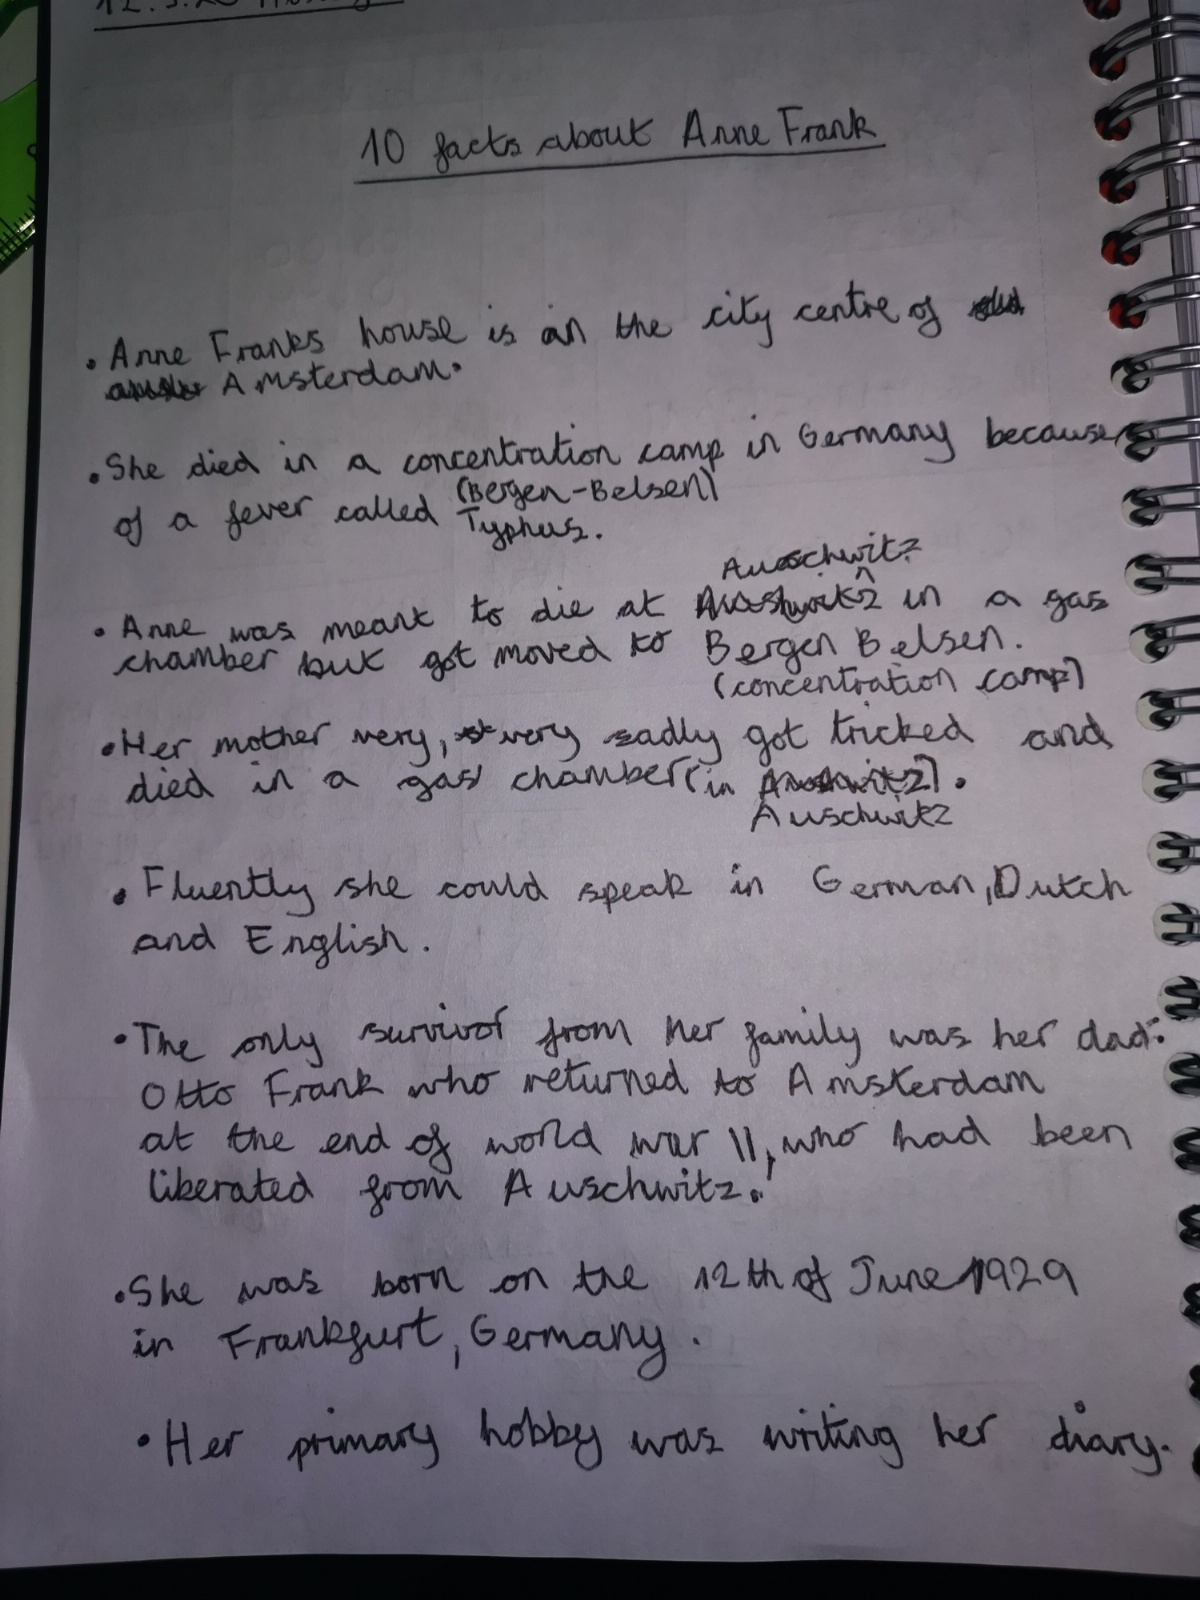 10 facts about Anne Frank
• Anne Franks house is in the city centre of
Amsterdam.
• She died in a concentration camp in Germany because
(Bergen-Belsen)
of a fever called Typhus.
Auschwitz
• Anne was meant to die at ^ in a gas
chamber but got moved to Bergen Belsen.
(concentration camp)
• Her mother very, very sadly got tricked and
died in a gas chamber (in ).
Auschwitz
• Fluently she could speak in German, Dutch
and English.
• The only survivor from her family was her dad:
Otto Frank who returned to Amsterdam
at the end of world war II, who had been
liberated from Auschwitz.
• She was born on the 12th of June 1929
in Frankfurt, Germany.
• Her primary hobby was writing her diary.